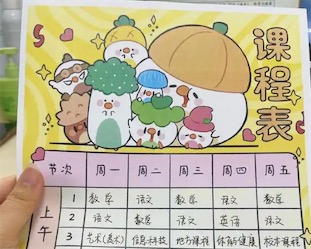 课程表
节次 周一 周二 周三 周四 周五
上午
1 数学 语文 数学 语文 数学
2 语文 数学 语文 英语 语文
3 艺术(美术) 信息科技 地方课程 体育健康 校本课程